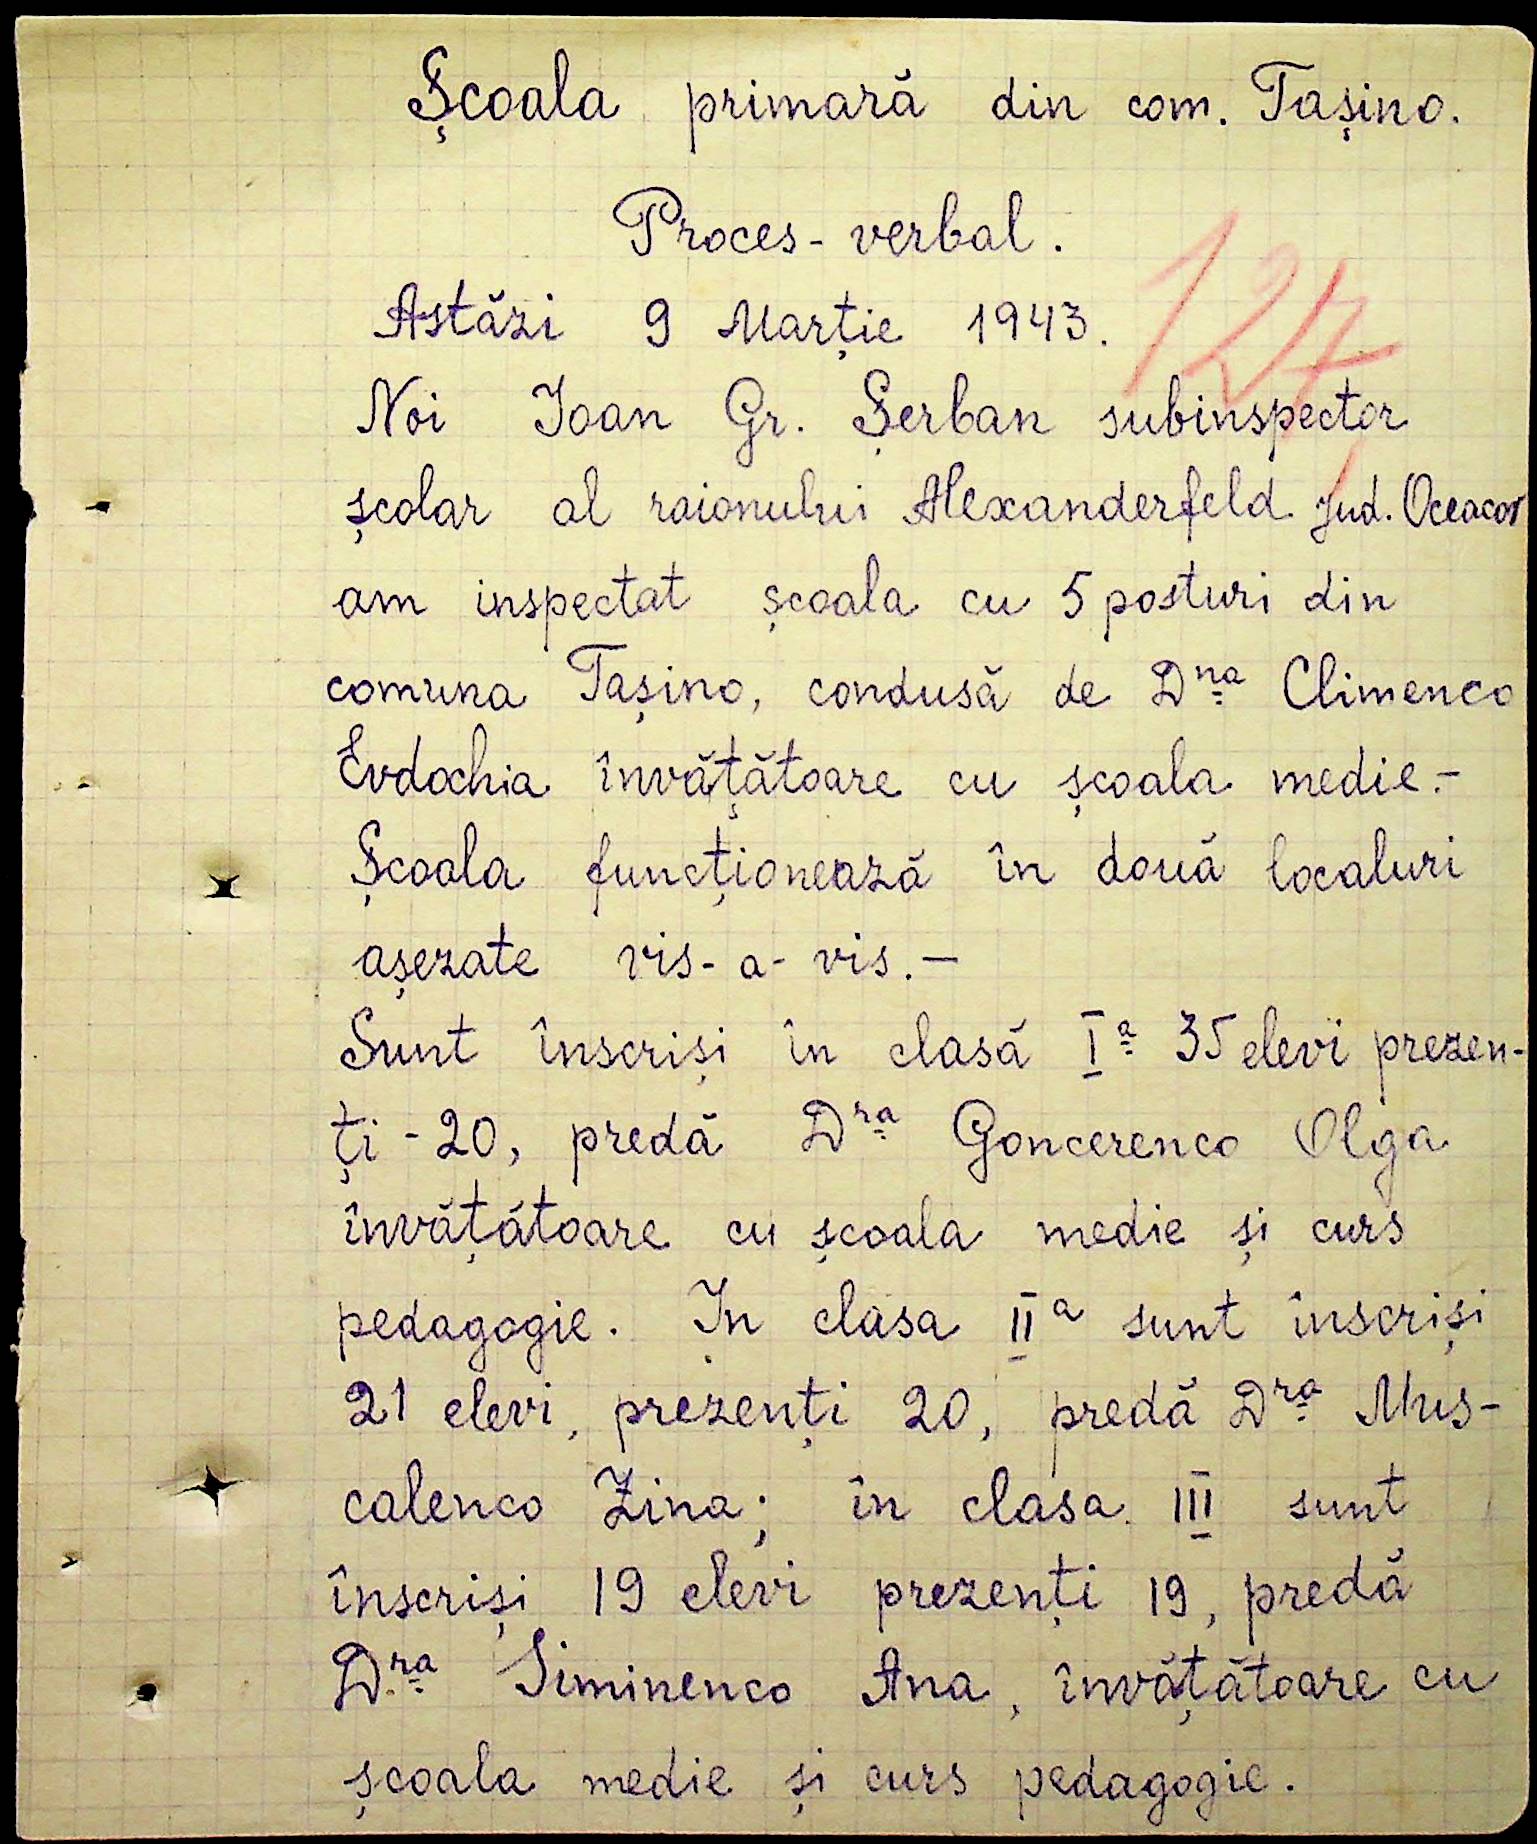 Școala primară din com. Tașino.
Proces-verbal.
127
Astăzi 9 Marție 1943.
Noi Ioan Gr. Șerban subinspector
școlar al raionului Alexanderfeld jud. Oceacov
am inspectat școala cu 5 posturi din
comuna Tașino, condusă de Dna Climenco
Evdochia învățătoare cu școala medie.-
Școala funcționează în două localuri
așezate vis-a-vis.-
Sunt înscriși în clasă Ia 35 elevi prezen-
ți - 20, predă Dra Goncerenco Olga
învățătoare cu școala medie și curs
pedagogie. In clasa IIa sunt înscriși
21 elevi, prezenți 20, predă Dra Mus-
calenco Zina; în clasa III sunt
înscriși 19 elevi prezenți 19, predă
Dra Siminenco Ana, învățătoare cu
școala medie și curs pedagogie.